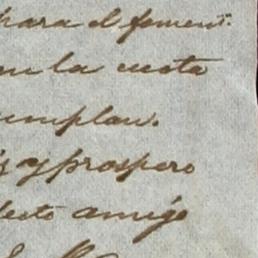 para el foment
en la cuesta
cumplan.
is y prospero
decto amigo